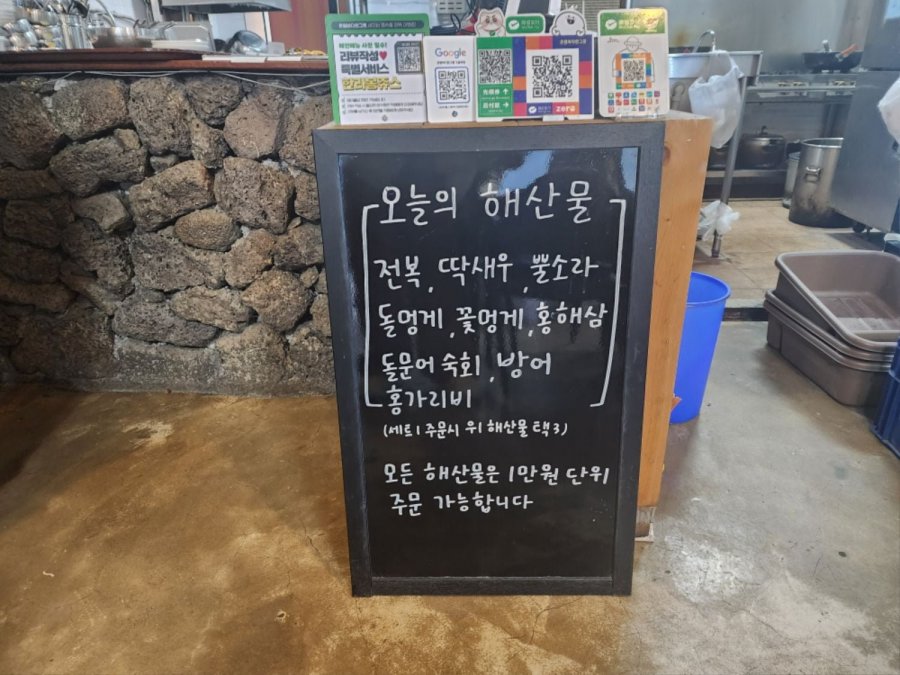 리뷰작성♥
특별서비스
한라봉쥬스
Google
zero
오늘의 해산물
전복, 딱새우, 뿔소라
돌멍게, 꽃멍게, 홍해삼
돌문어 숙회, 방어
홍가리비
(세트1 주문시 위 해산물 택3)
모든 해산물은 1만원 단위
주문 가능합니다